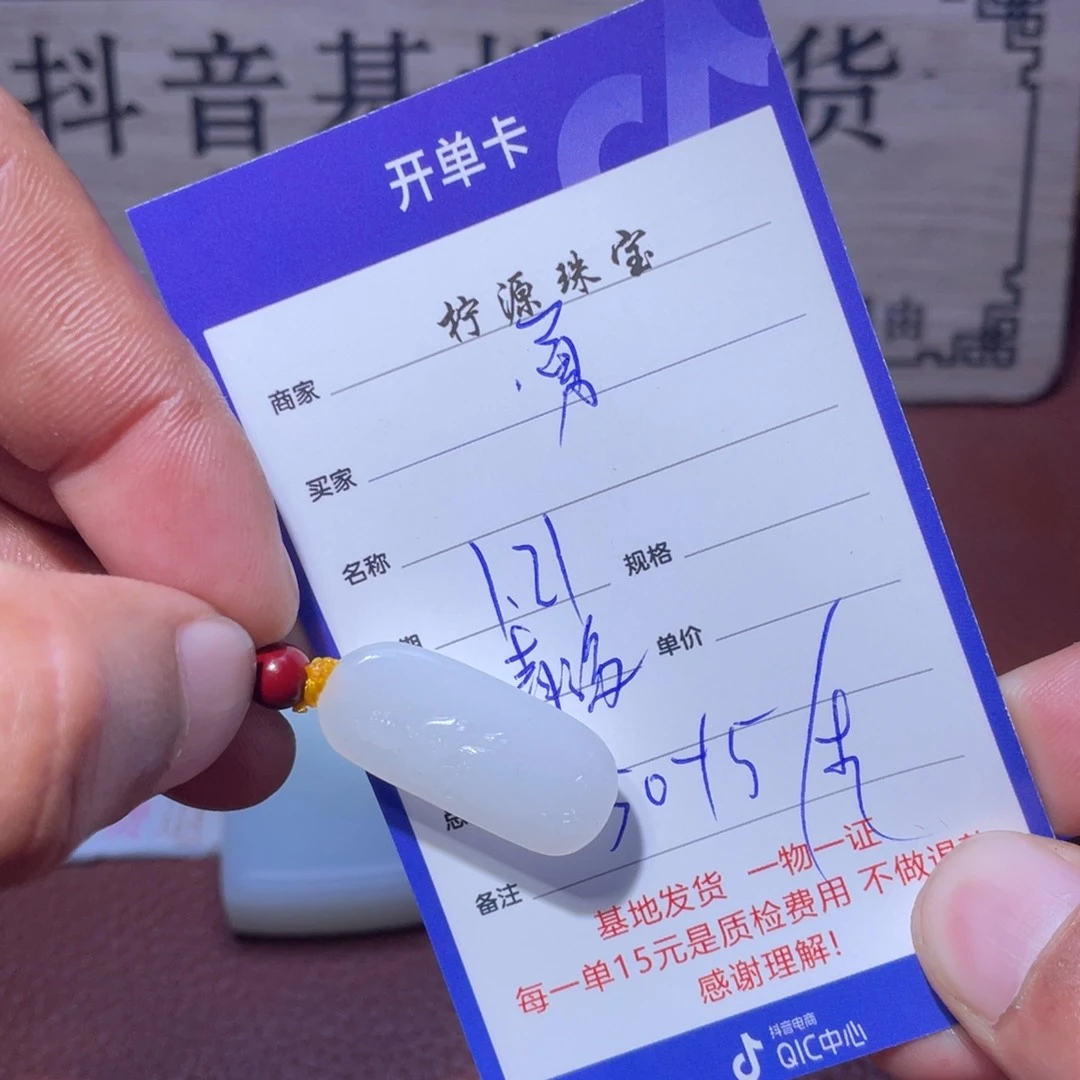 抖音基地 货
由
开单卡
商家 柠源珠宝
买家 勇
名称
规格
期 1.21
单价
青海
总 50+15
备注
基地发货 一物一证
每一单15元是质检费用 不做退
感谢理解!
抖音电商
QIC中心